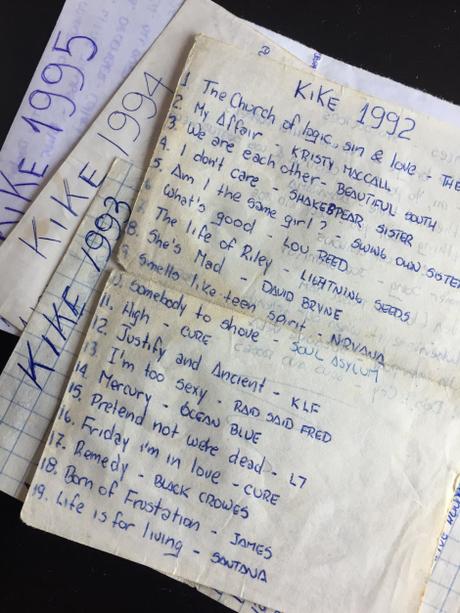 KIKE 1995
KIKE 1994
KIKE 1993
KIKE 1992
1 The Church of logic, sin & love - THE
2 My Affair - KRISTY MACCALL
3. We are each other - BEAUTIFUL SOUTH
4. I don't care - SHAKESPEAR SISTER
5. Am I the same girl? - SWING OWN SISTER
6 What's good - LOU REED
7. The life of Riley - LIGHTNING SEEDS
8. She's Mad - DAVID BRYNE
9. Smells like teen spirit - NIRVANA
10. Somebody to shove - SOUL ASYLUM
11. High - CURE
12. Justify and Ancient - KLF
13. I'm too sexy - RAID SAID FRED
14. Mercury - OCEAN BLUE
15. Pretend not were dead - L7
16. Friday i'm in love - CURE
17. Remedy - BLACK CROWES
18. Born of Frustation - JAMES
19. Life is for living - SANTANA